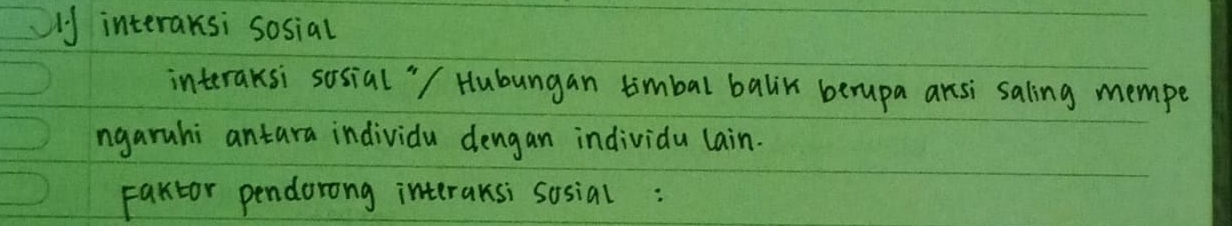 1.) interaksi sosial
interaksi sosial "/ Hubungan timbal balik berupa aksi saling mempe
ngaruhi antara individu dengan individu lain.
Faktor pendorong interaksi sosial :